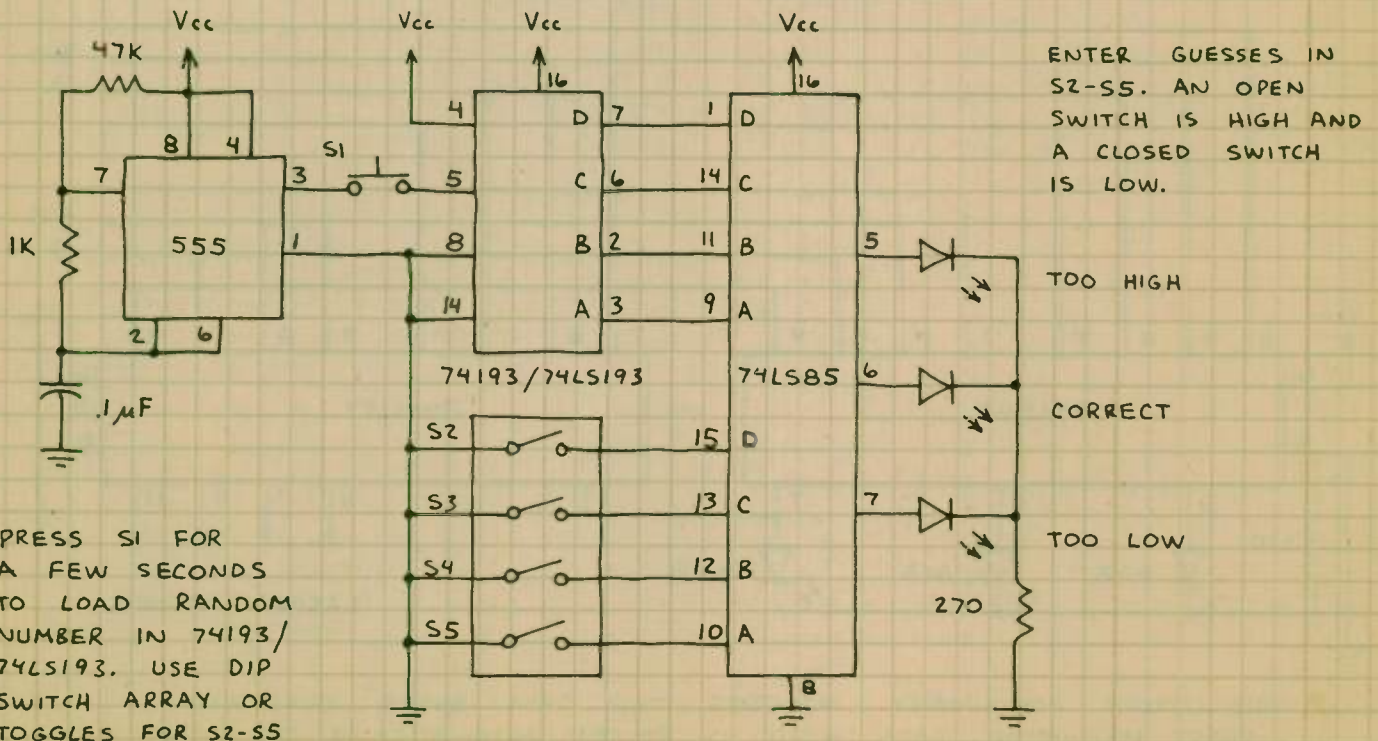 Vcc
47K
8
4
7
3
S1
1K
555
1
2
6
.1µF
PRESS S1 FOR
A FEW SECONDS
TO LOAD RANDOM
NUMBER IN 74193/
74LS193. USE DIP
SWITCH ARRAY OR
TOGGLES FOR S2-S5
Vcc
Vcc
16
4
5
8
14
D
C
B
A
7
6
2
3
74193/74LS193
S2
S3
S4
S5
Vcc
16
1
14
11
9
D
C
B
A
74LS85
15
13
12
10
D
C
B
A
8
5
6
7
ENTER GUESSES IN
S2-S5. AN OPEN
SWITCH IS HIGH AND
A CLOSED SWITCH
IS LOW.
TOO HIGH
CORRECT
TOO LOW
270